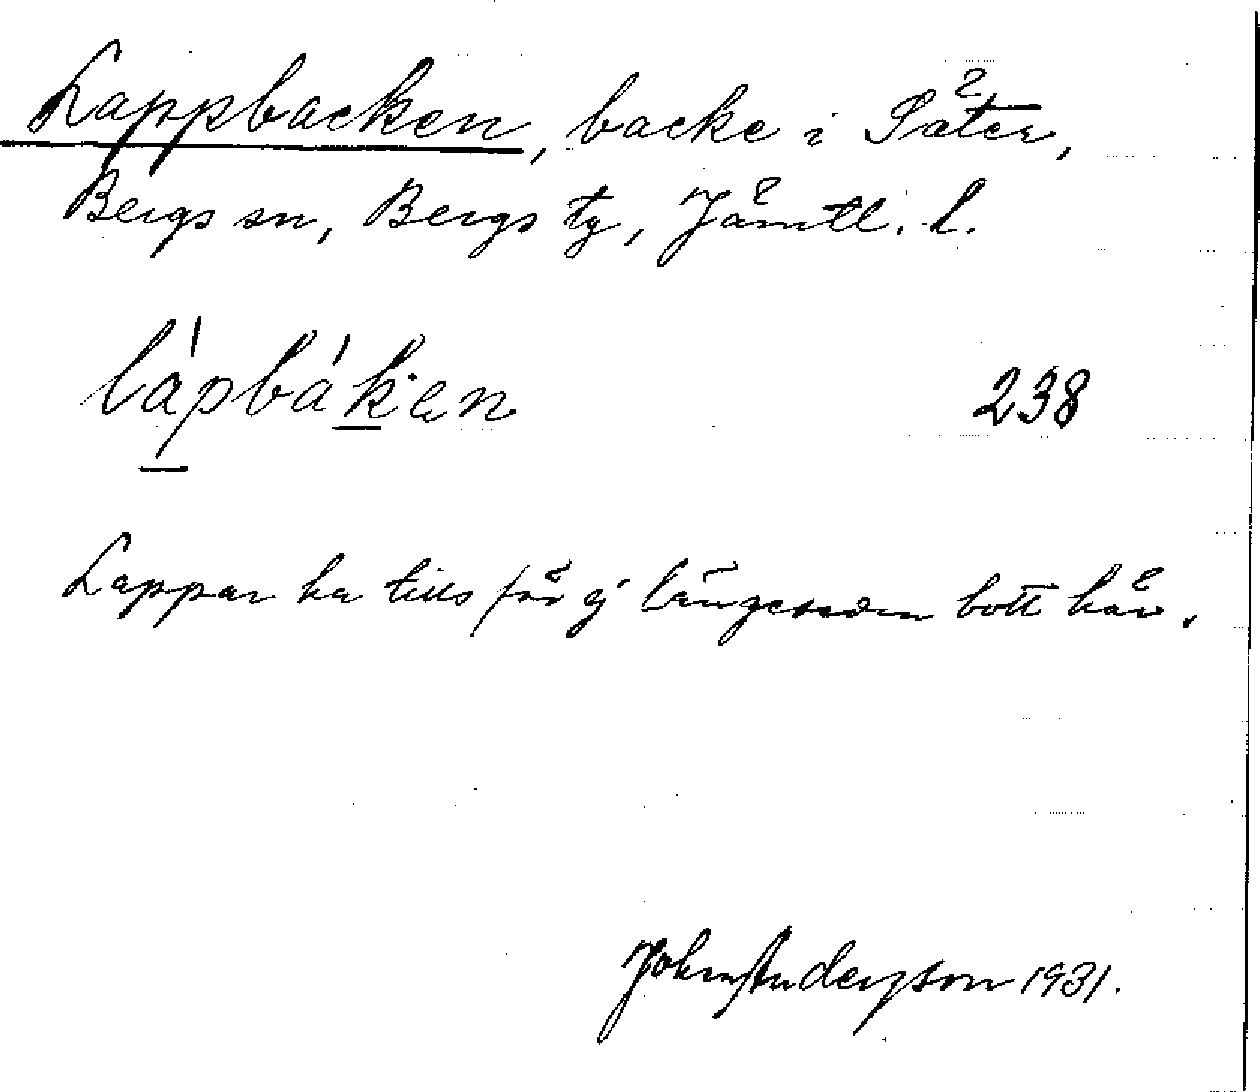 Lappbacken, backe i Säter,
Bergs sn, Bergs tg, Jämtl. l.
lápbáken 238
Lappar ha tills för ej längesedan bott här.
John Anderson 1931.